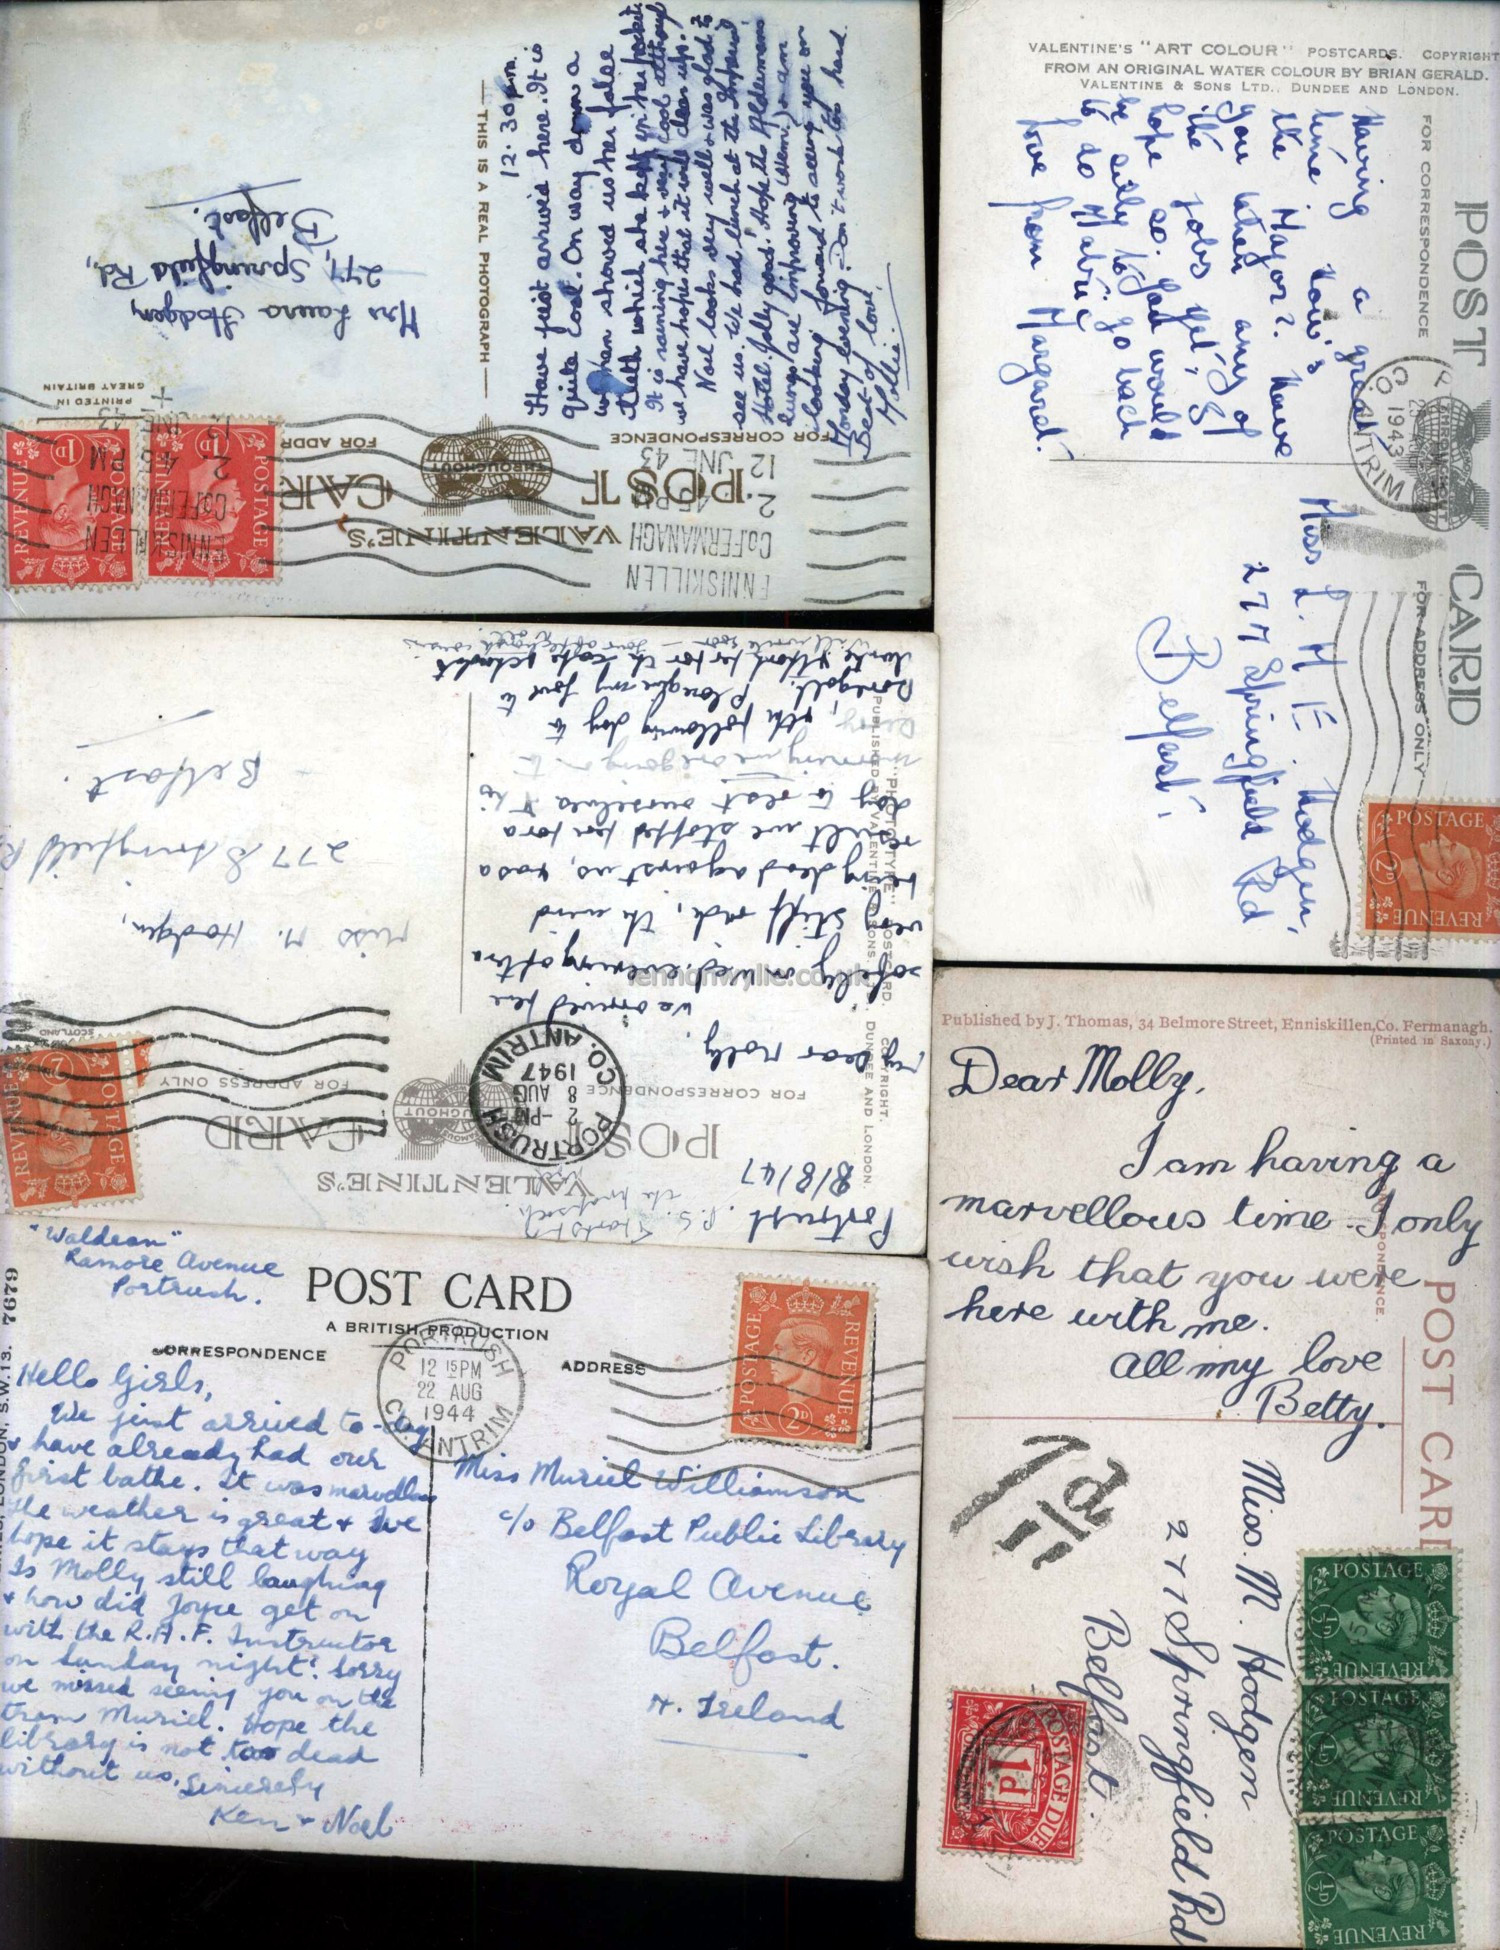 THIS IS A REAL PHOTOGRAPH
12.30 p.m.
Have just arrived here. It is
quite cool. On way down a
woman showed us her false
teeth which she kept in her pocket.
It is raining here & very cool although
we have hopes that it will clear up.
Noel looks very well & was glad to
see us. We had lunch at the Imperial
Hotel. Jolly good. Hope the Aldermans
lungs are improving (Ahem.) & am
looking forward to seeing you on
Monday evening. Don't work too hard.
Best of love,
Mollie.
Mrs Laura Hodgen,
277, Springfield Rd,
Belfast.
PRINTED IN
GREAT BRITAIN
FOR CORRESPONDENCE
FOR ADDR
VALENTINE'S
POST CAR
THROUGHOUT
ENNISKILLEN
Co.FERMANAGH
2 45 PM
12 JNE 43
ENNISKILLEN
Co.FERMANAGH
2 45 PM
12 JNE 43
POSTAGE REVENUE 1D
POSTAGE REVENUE 1D
VALENTINE'S "ART COLOUR" POSTCARDS. COPYRIGHT
FROM AN ORIGINAL WATER COLOUR BY BRIAN GERALD.
VALENTINE & SONS LTD., DUNDEE AND LONDON.
POST CARD
FOR CORRESPONDENCE
FOR ADDRESS ONLY
Having a great
time. How's
the Major? Have
you taken any of
the jobs yet, I
hope so. You would
be silly to go back
to do
love from Margaret.
1943
ANTRIM
Miss L. M. E. Hodgen,
277 Springfield Rd
Belfast.
POSTAGE 2D REVENUE
VALENTINE'S
POST CARD
FOR CORRESPONDENCE
FOR ADDRESS ONLY
"PHOTOTYPE" POSTCARD. COPYRIGHT.
PUBLISHED BY VALENTINE & SONS. DUNDEE AND LONDON.
SCOTLAND
Portrush.
8/8/47
My Dear Molly,
We arrived here
safely on Wed. evening after a
very stiff ride, the wind
being dead against us, & as a
result we stopped here for a
day to rest ourselves & this
morning we are going on to
Derry, & the following day to
Donegal.
P.S. Thanks
the
PORTRUSH
2 - PM
8 AUG
1947
CO. ANTRIM
Miss M. Hodgen,
277 Springfield R
Belfast.
POSTAGE 2D REVENUE
lennonwylie.co.uk
"Waldean"
Ramore Avenue
Portrush.
7679
LONDON, S.W.13.
POST CARD
A BRITISH PRODUCTION
CORRESPONDENCE
ADDRESS
PORTRUSH
12 15 PM
22 AUG
1944
CO. ANTRIM
POSTAGE 2D REVENUE
Hello Girls,
We just arrived to-day
& have already had our
first bathe. It was marvellous
The weather is great & we
hope it stays that way
Is Molly still laughing
& how did Joyce get on
with the R.A.F. Instructor
on Sunday night? Sorry
we missed seeing you on the
tram Muriel. Hope the
library is not too dead
without us. Sincerely
Ken & Noel
Miss Muriel Williamson
c/o Belfast Public Library
Royal Avenue
Belfast.
N. Ireland
Published by J. Thomas, 34 Belmore Street, Enniskillen, Co. Fermanagh.
(Printed in Saxony.)
POST CARD
Dear Molly,
I am having a
marvellous time. I only
wish that you were
here with me.
All my love
Betty.
1d
Miss. M. Hodgen
277 Springfield Rd
Belfast.
POSTAGE ½D REVENUE
POSTAGE ½D REVENUE
POSTAGE ½D REVENUE
POSTAGE DUE 1d